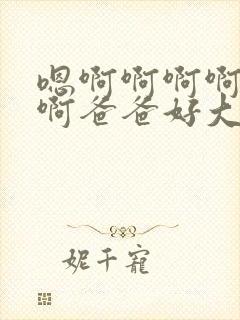 嗯啊啊啊啊
啊爸爸好大
妮千寵